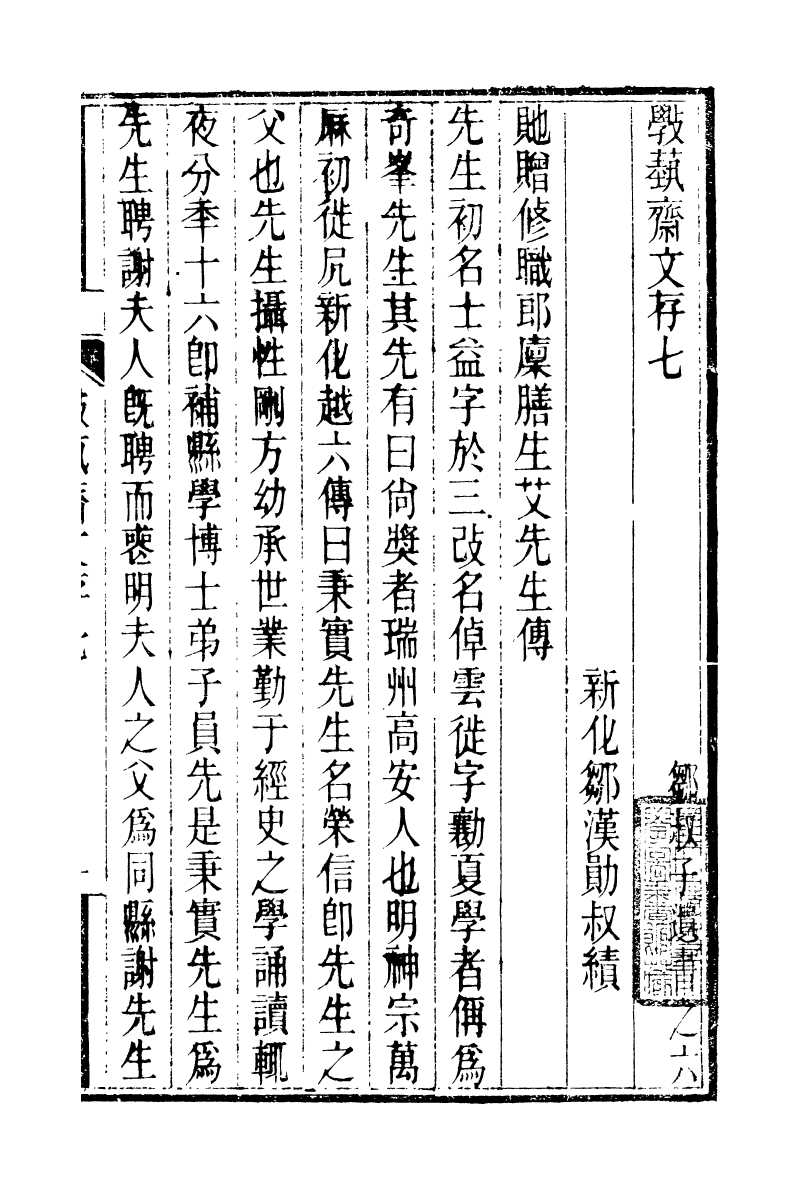 斆蓺齋文存七 鄒叔子遺書之六
新化鄒漢勛叔績
貤贈修職郎廩膳生艾先生傳
先生初名士益字於三改名倬雲徙字勷夏學者偁爲
奇峯先生其先有曰尙獎者瑞州高安人也明神宗萬
厤初徙凥新化越六傳曰秉實先生名榮信卽先生之
父也先生攝性剛方幼承世業勤于經史之學誦讀輒
夜分秊十六卽補縣學博士弟子員先是秉實先生爲
先生聘謝夫人旣聘而喪明夫人之父爲同縣謝先生